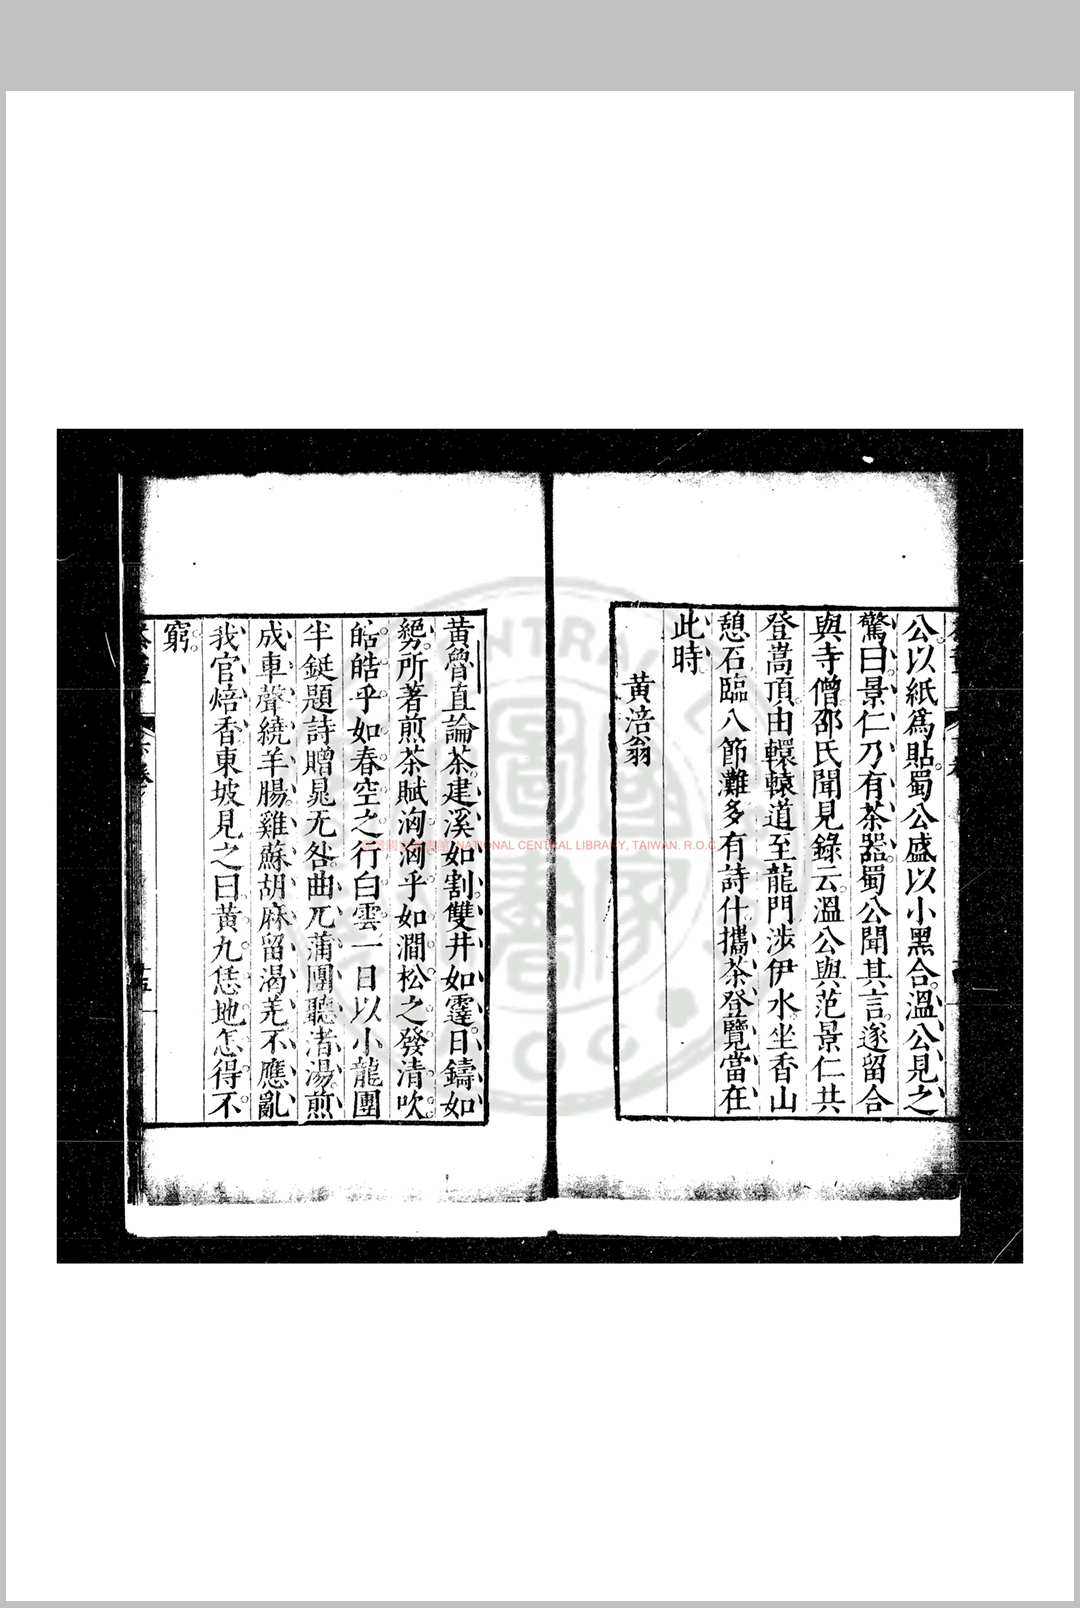 公以紙爲貼蜀公盛以小黑合溫公見之
驚曰景仁乃有茶器蜀公聞其言遂留合
與寺僧邵氏聞見錄云溫公與范景仁共
登嵩頂由轘轅道至龍門涉伊水坐香山
憩石臨八節灘多有詩什攜茶登覽當在
此時
黄涪翁
黄魯直論茶建溪如割雙井如霆日鑄如
勢所著煎茶賦洶洶乎如澗松之發清吹
皓皓乎如春空之行白雲一日以小龍團
半鋌題詩贈晁无咎曲兀蒲團聽渚湯煎
成車聲繞羊腸雞蘇胡麻留渴羌不應亂
我官焙香東坡見之曰黄九恁地怎得不
窮
NATIONAL CENTRAL LIBRARY, TAIWAN. R.O.C